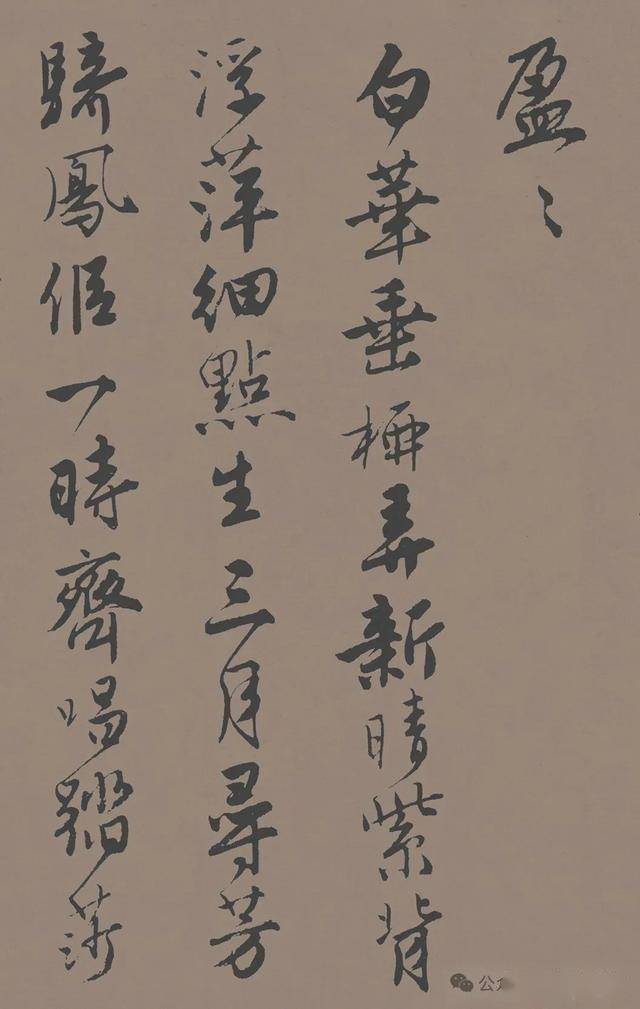 盈〻
白華垂桺弄新晴紫背
浮萍細點生三月尋芳
騎鳳侶一時齊唱踏莎
公